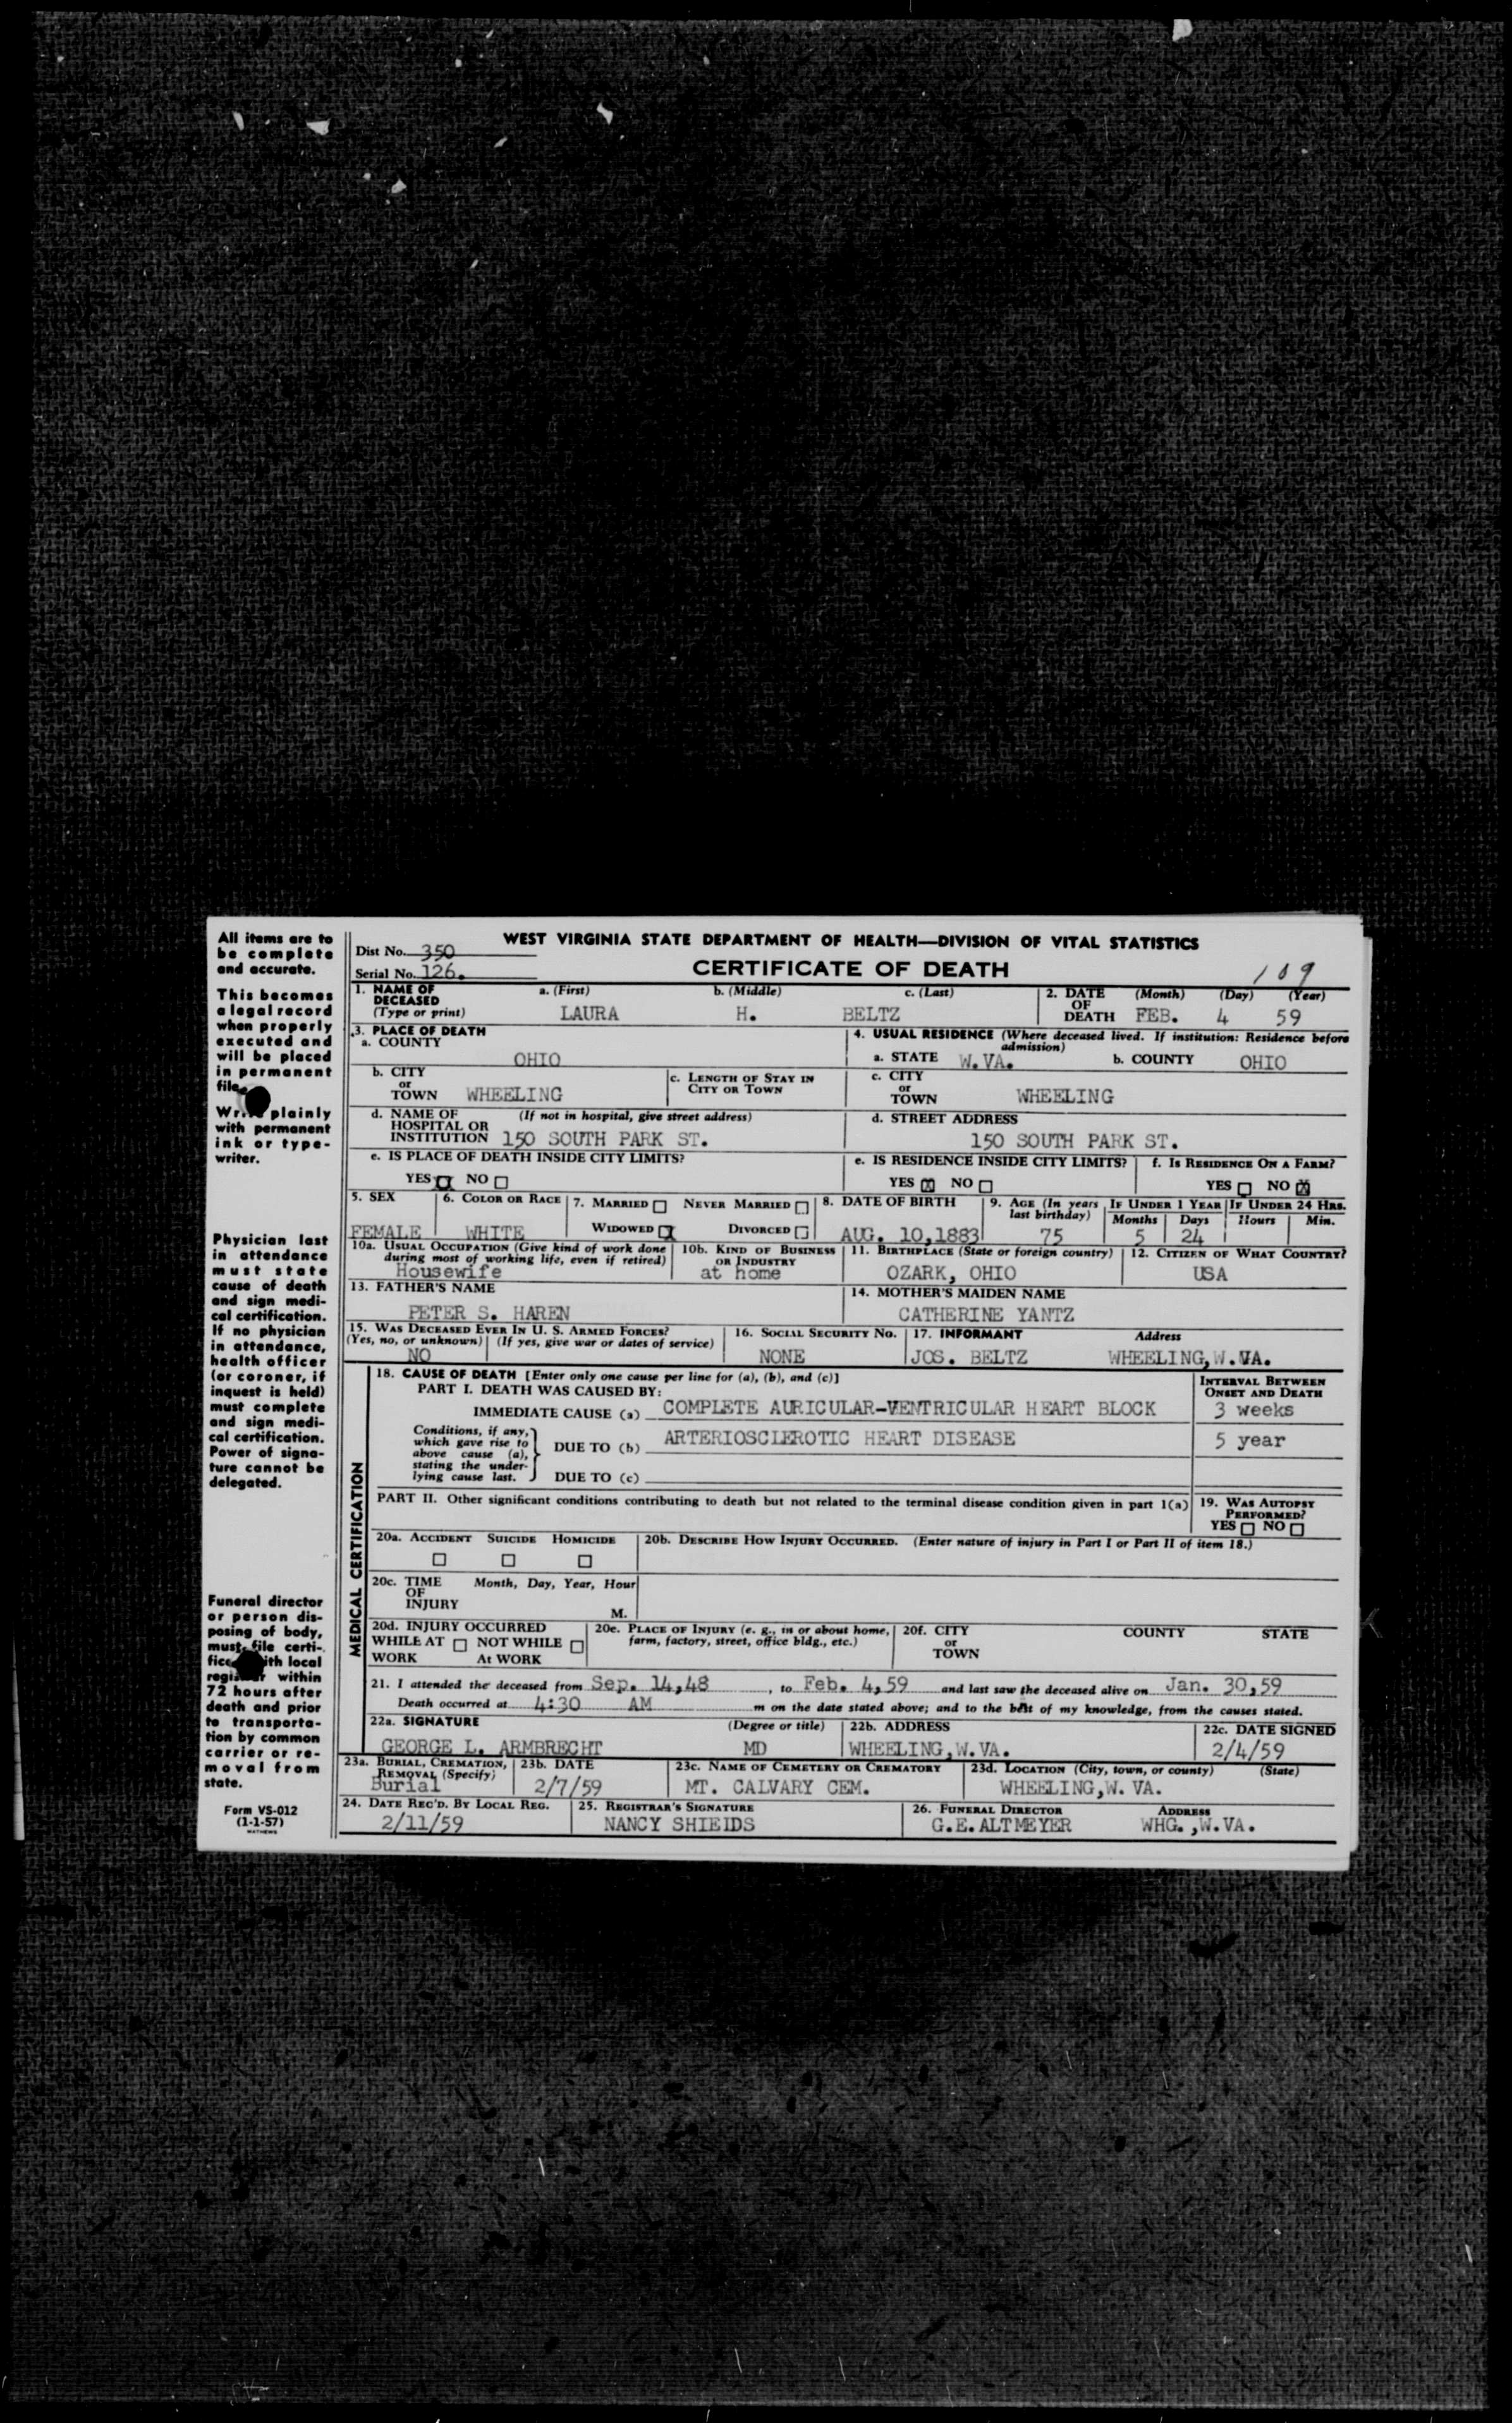 All items are to
be complete
and accurate.
This becomes
a legal record
when properly
executed and
will be placed
in permanent
file.
Write plainly
with permanent
ink or type-
writer.
Physician last
in attendance
must state
cause of death
and sign medi-
cal certification.
If no physician
in attendance,
health officer
(or coroner, if
inquest is held)
must complete
and sign medi-
cal certification.
Power of signa-
ture cannot be
delegated.
Funeral director
or person dis-
posing of body,
must file certi-
ficate with local
registrar within
72 hours after
death and prior
to transporta-
tion by common
carrier or re-
moval from
state.
Form VS-012
(1-1-57)
MATHEWS
WEST VIRGINIA STATE DEPARTMENT OF HEALTH—DIVISION OF VITAL STATISTICS
Dist No. 350
CERTIFICATE OF DEATH
Serial No. 126.
109
1. NAME OF DECEASED (Type or print) a. (First) LAURA b. (Middle) H. c. (Last) BELTZ
2. DATE OF DEATH (Month) FEB. (Day) 4 (Year) 59
3. PLACE OF DEATH
a. COUNTY OHIO
4. USUAL RESIDENCE (Where deceased lived. If institution: Residence before admission)
a. STATE W.VA. b. COUNTY OHIO
b. CITY or TOWN WHEELING
c. LENGTH OF STAY IN CITY OR TOWN
c. CITY or TOWN WHEELING
d. NAME OF HOSPITAL OR INSTITUTION (If not in hospital, give street address) 150 SOUTH PARK ST.
d. STREET ADDRESS 150 SOUTH PARK ST.
e. IS PLACE OF DEATH INSIDE CITY LIMITS? YES ☒ NO ☐
e. IS RESIDENCE INSIDE CITY LIMITS? YES ☒ NO ☐
f. IS RESIDENCE ON A FARM? YES ☐ NO ☒
5. SEX FEMALE
6. COLOR OR RACE WHITE
7. MARRIED ☐ NEVER MARRIED ☐ WIDOWED ☒ DIVORCED ☐
8. DATE OF BIRTH AUG. 10,1883
9. AGE (In years last birthday) 75
IF UNDER 1 YEAR Months 5 Days 24
IF UNDER 24 HRS. Hours Min.
10a. USUAL OCCUPATION (Give kind of work done during most of working life, even if retired) Housewife
10b. KIND OF BUSINESS OR INDUSTRY at home
11. BIRTHPLACE (State or foreign country) OZARK, OHIO
12. CITIZEN OF WHAT COUNTRY? USA
13. FATHER'S NAME PETER S. HAREN
14. MOTHER'S MAIDEN NAME CATHERINE YANTZ
15. WAS DECEASED EVER IN U. S. ARMED FORCES? (Yes, no, or unknown) (If yes, give war or dates of service) NO
16. SOCIAL SECURITY No. NONE
17. INFORMANT JOS. BELTZ Address WHEELING,W.VA.
MEDICAL CERTIFICATION
18. CAUSE OF DEATH [Enter only one cause per line for (a), (b), and (c)]
INTERVAL BETWEEN ONSET AND DEATH
PART I. DEATH WAS CAUSED BY:
IMMEDIATE CAUSE (a) COMPLETE AURICULAR-VENTRICULAR HEART BLOCK 3 weeks
Conditions, if any, which gave rise to above cause (a), stating the under-lying cause last.
DUE TO (b) ARTERIOSCLEROTIC HEART DISEASE 5 year
DUE TO (c)
PART II. Other significant conditions contributing to death but not related to the terminal disease condition given in part 1(a)
19. WAS AUTOPSY PERFORMED? YES ☐ NO ☐
20a. ACCIDENT ☐ SUICIDE ☐ HOMICIDE ☐
20b. DESCRIBE HOW INJURY OCCURRED. (Enter nature of injury in Part I or Part II of item 18.)
20c. TIME OF INJURY Month, Day, Year, Hour M.
20d. INJURY OCCURRED WHILE AT WORK ☐ NOT WHILE At WORK ☐
20e. PLACE OF INJURY (e. g., in or about home, farm, factory, street, office bldg., etc.)
20f. CITY or TOWN COUNTY STATE
21. I attended the deceased from Sep. 14,48, to Feb. 4,59 and last saw the deceased alive on Jan. 30,59
Death occurred at 4:30 AM m on the date stated above; and to the best of my knowledge, from the causes stated.
22a. SIGNATURE GEORGE L. ARMBRECHT (Degree or title) MD
22b. ADDRESS WHEELING,W.VA.
22c. DATE SIGNED 2/4/59
23a. BURIAL, CREMATION, REMOVAL (Specify) Burial
23b. DATE 2/7/59
23c. NAME OF CEMETERY OR CREMATORY MT. CALVARY CEM.
23d. LOCATION (City, town, or county) (State) WHEELING,W. VA.
24. DATE REC'D. BY LOCAL REG. 2/11/59
25. REGISTRAR'S SIGNATURE NANCY SHIEIDS
26. FUNERAL DIRECTOR G.E.ALTMEYER ADDRESS WHG.,W.VA.